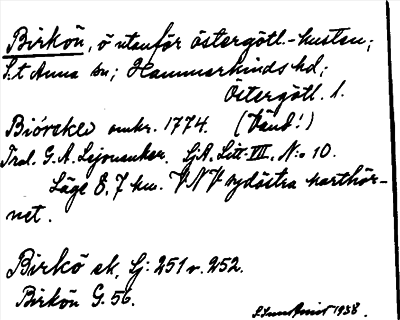 Birkön, ö utanför östergötl.-kusten;
S:t Anna sn; Hammarkinds hd;
Östergötl. l.
Biörcklö omkr. 1774. (Vänd!)
Trol. G. A. Lejonanckar. SjA, Litt: VII. N:o 10.
Läge 8,7 km. VNV sydöstra karthör-
net.
Birkö ek. Sj: 251 v. 252.
Birkön G. 56.
1938.